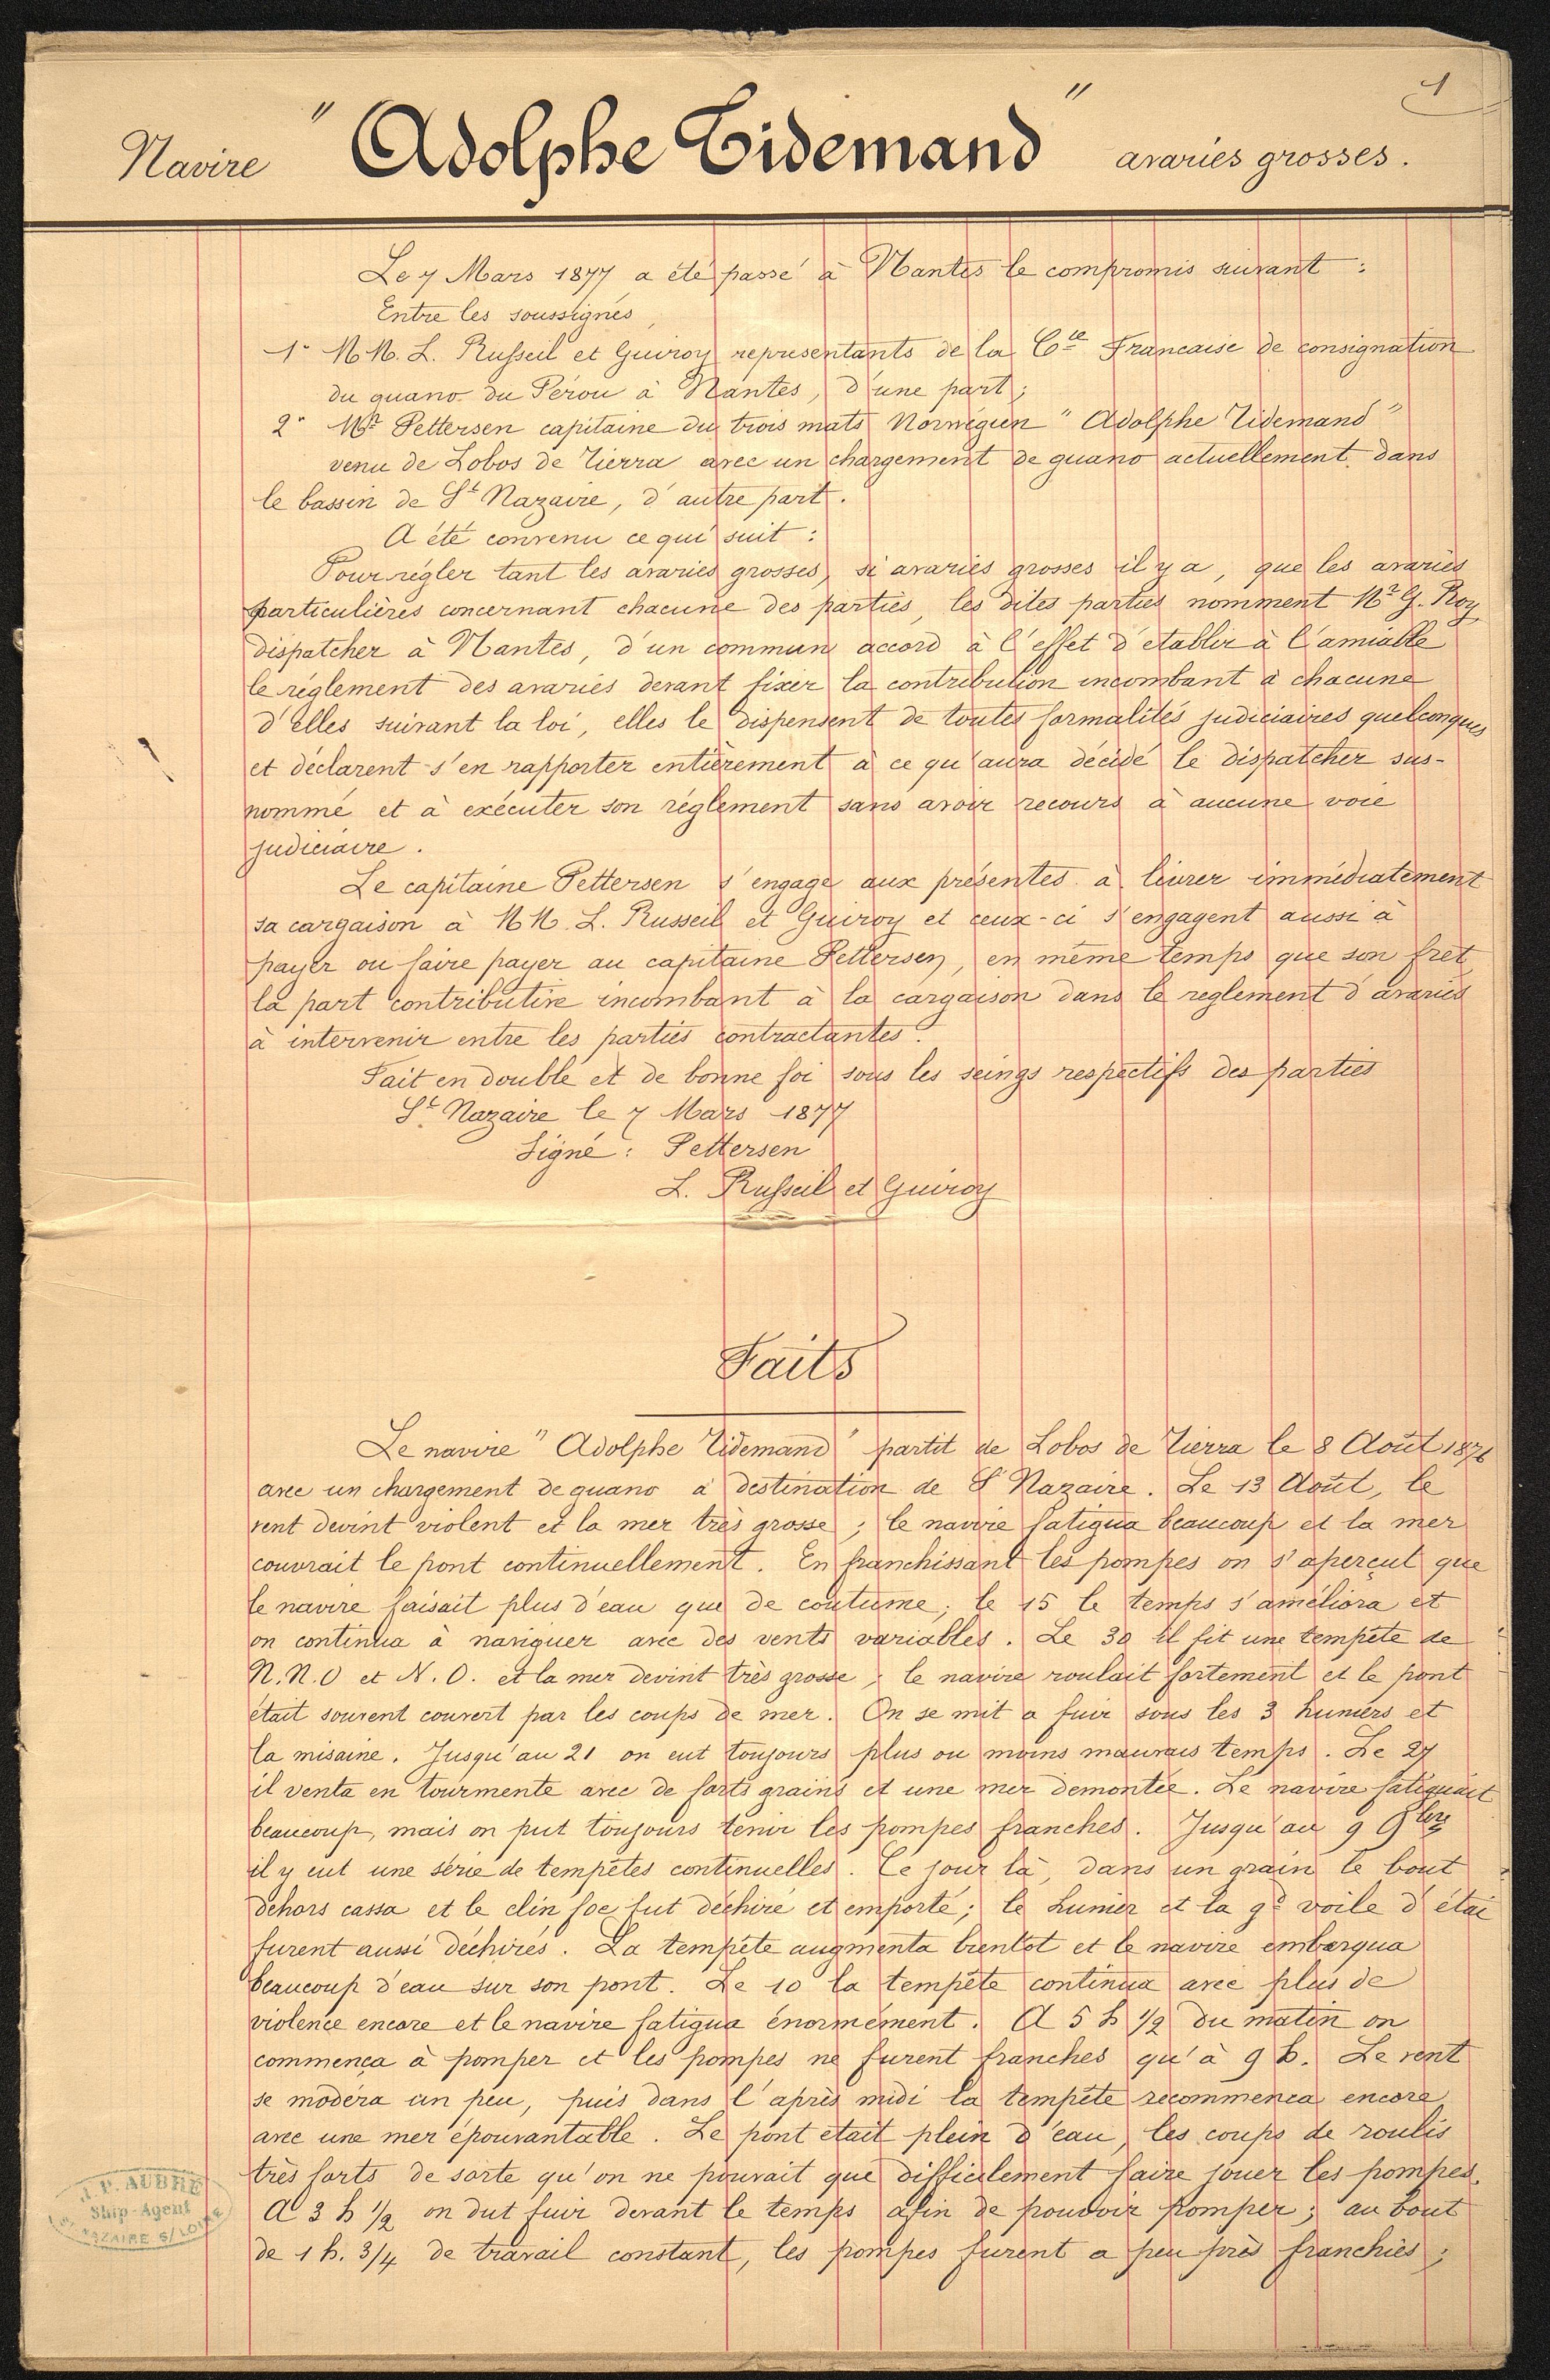 1
Navire "Adolphe Tidemand" avaries grosses.
Le 7 Mars 1877 a été passé à Nantes le compromis suivant :
Entre les soussignés,
1° M M. L. Russeil et Guiroy representants de la Cie Francaise de consignation
du guano du Pérou à Nantes, d'une part ;
2° Mr Pettersen capitaine du trois mats Norwégien "Adolphe Tidemand"
venu de Lobos de Tierra avec un chargement de guano actuellement dans
le bassin de St Nazaire, d'autre part.
A été convenu ce qui suit :
Pour régler tant les avaries grosses, si avaries grosses il y a, que les avaries
particulières concernant chacune des parties, les dites parties nomment Mr G. Roy
dispatcher à Nantes, d'un commun accord à l'effet d'etablir à l'amiable
le réglement des avaries devant fixer la contribution incombant à chacune
d'elles suivant la loi, elles le dispensent de toutes formalités judiciaires quelconques
et déclarent s'en rapporter entièrement à ce qu'aura décidé le dispatcher sus-
nommé et à exécuter son réglement sans avoir recours à aucune voie
judiciaire.
Le capitaine Pettersen s'engage aux présentes à livrer immédiatement
sa cargaison à M M. L. Russeil et Guiroy et ceux-ci s'engagent aussi à
payer ou faire payer au capitaine Pettersen, en même temps que son fret,
la part contributive incombant à la cargaison dans le reglement d'avaries
à intervenir entre les parties contractantes.
Fait en double et de bonne foi sous les seings respectifs des parties
St Nazaire le 7 Mars 1877
Signé : Pettersen
L. Russeil et Guiroy
Faits
Le navire "Adolphe Tidemand" partit de Lobos de Tierra le 8 Août 1876
avec un chargement de guano à destination de St Nazaire. Le 13 Août, le
vent devint violent et la mer très grosse ; le navire fatigua beaucoup et la mer
couvrait le pont continuellement. En franchissant les pompes on s'aperçut que
le navire faisait plus d'eau que de coutume ; le 15 le temps s'améliora et
on continua à naviguer avec des vents variables. Le 30 il fit une tempête de
N.N.O et N.O. et la mer devint très grosse ; le navire roulait fortement et le pont
était souvent couvert par les coups de mer. On se mit a fuir sous les 3 huniers et
la misaine. Jusqu'au 21 on eut toujours plus ou moins mauvais temps. Le 27
il venta en tourmente avec de forts grains et une mer demontée. Le navire fatiguait
beaucoup, mais on put toujours tenir les pompes franches. Jusqu'au 9 8bre
il y eut une série de tempêtes continuelles. Ce jour là, dans un grain le bout
dehors cassa et le clin foc fut déchiré et emporté ; le hunier et la gde voile d'étai
furent aussi déchirés. La tempête augmenta bientôt et le navire embarqua
beaucoup d'eau sur son pont. Le 10 la tempête continua avec plus de
violence encore et le navire fatigua énormément. A 5 h 1/2 du matin on
commença à pomper et les pompes ne furent franches qu'à 9 h. Le vent
se modéra un peu, puis dans l'après midi la tempête recommença encore
avec une mer épouvantable. Le pont etait plein d'eau, les coups de roulis
très forts de sorte qu'on ne pouvait que difficilement faire jouer les pompes.
A 3 h 1/2 on dut fuir devant le temps afin de pouvoir pomper ; au bout
de 1 h. 3/4 de travail constant, les pompes furent a peu près franchies ;
J. P. AUBRÉ
Ship-Agent
ST NAZAIRE S/LOIRE